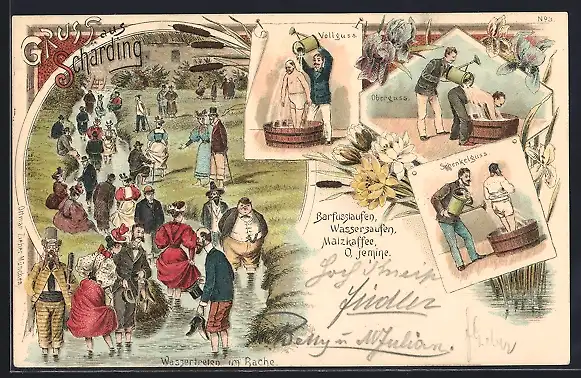 Gruss aus
Schärding
No 3.
Vollguss.
Oberguss.
Schenkelguss.
Barfusslaufen,
Wassersaufen,
Malzkaffee,
O, jemine.
Wassertreten im Bache.
Ottmar Zieher, München.
Betty u